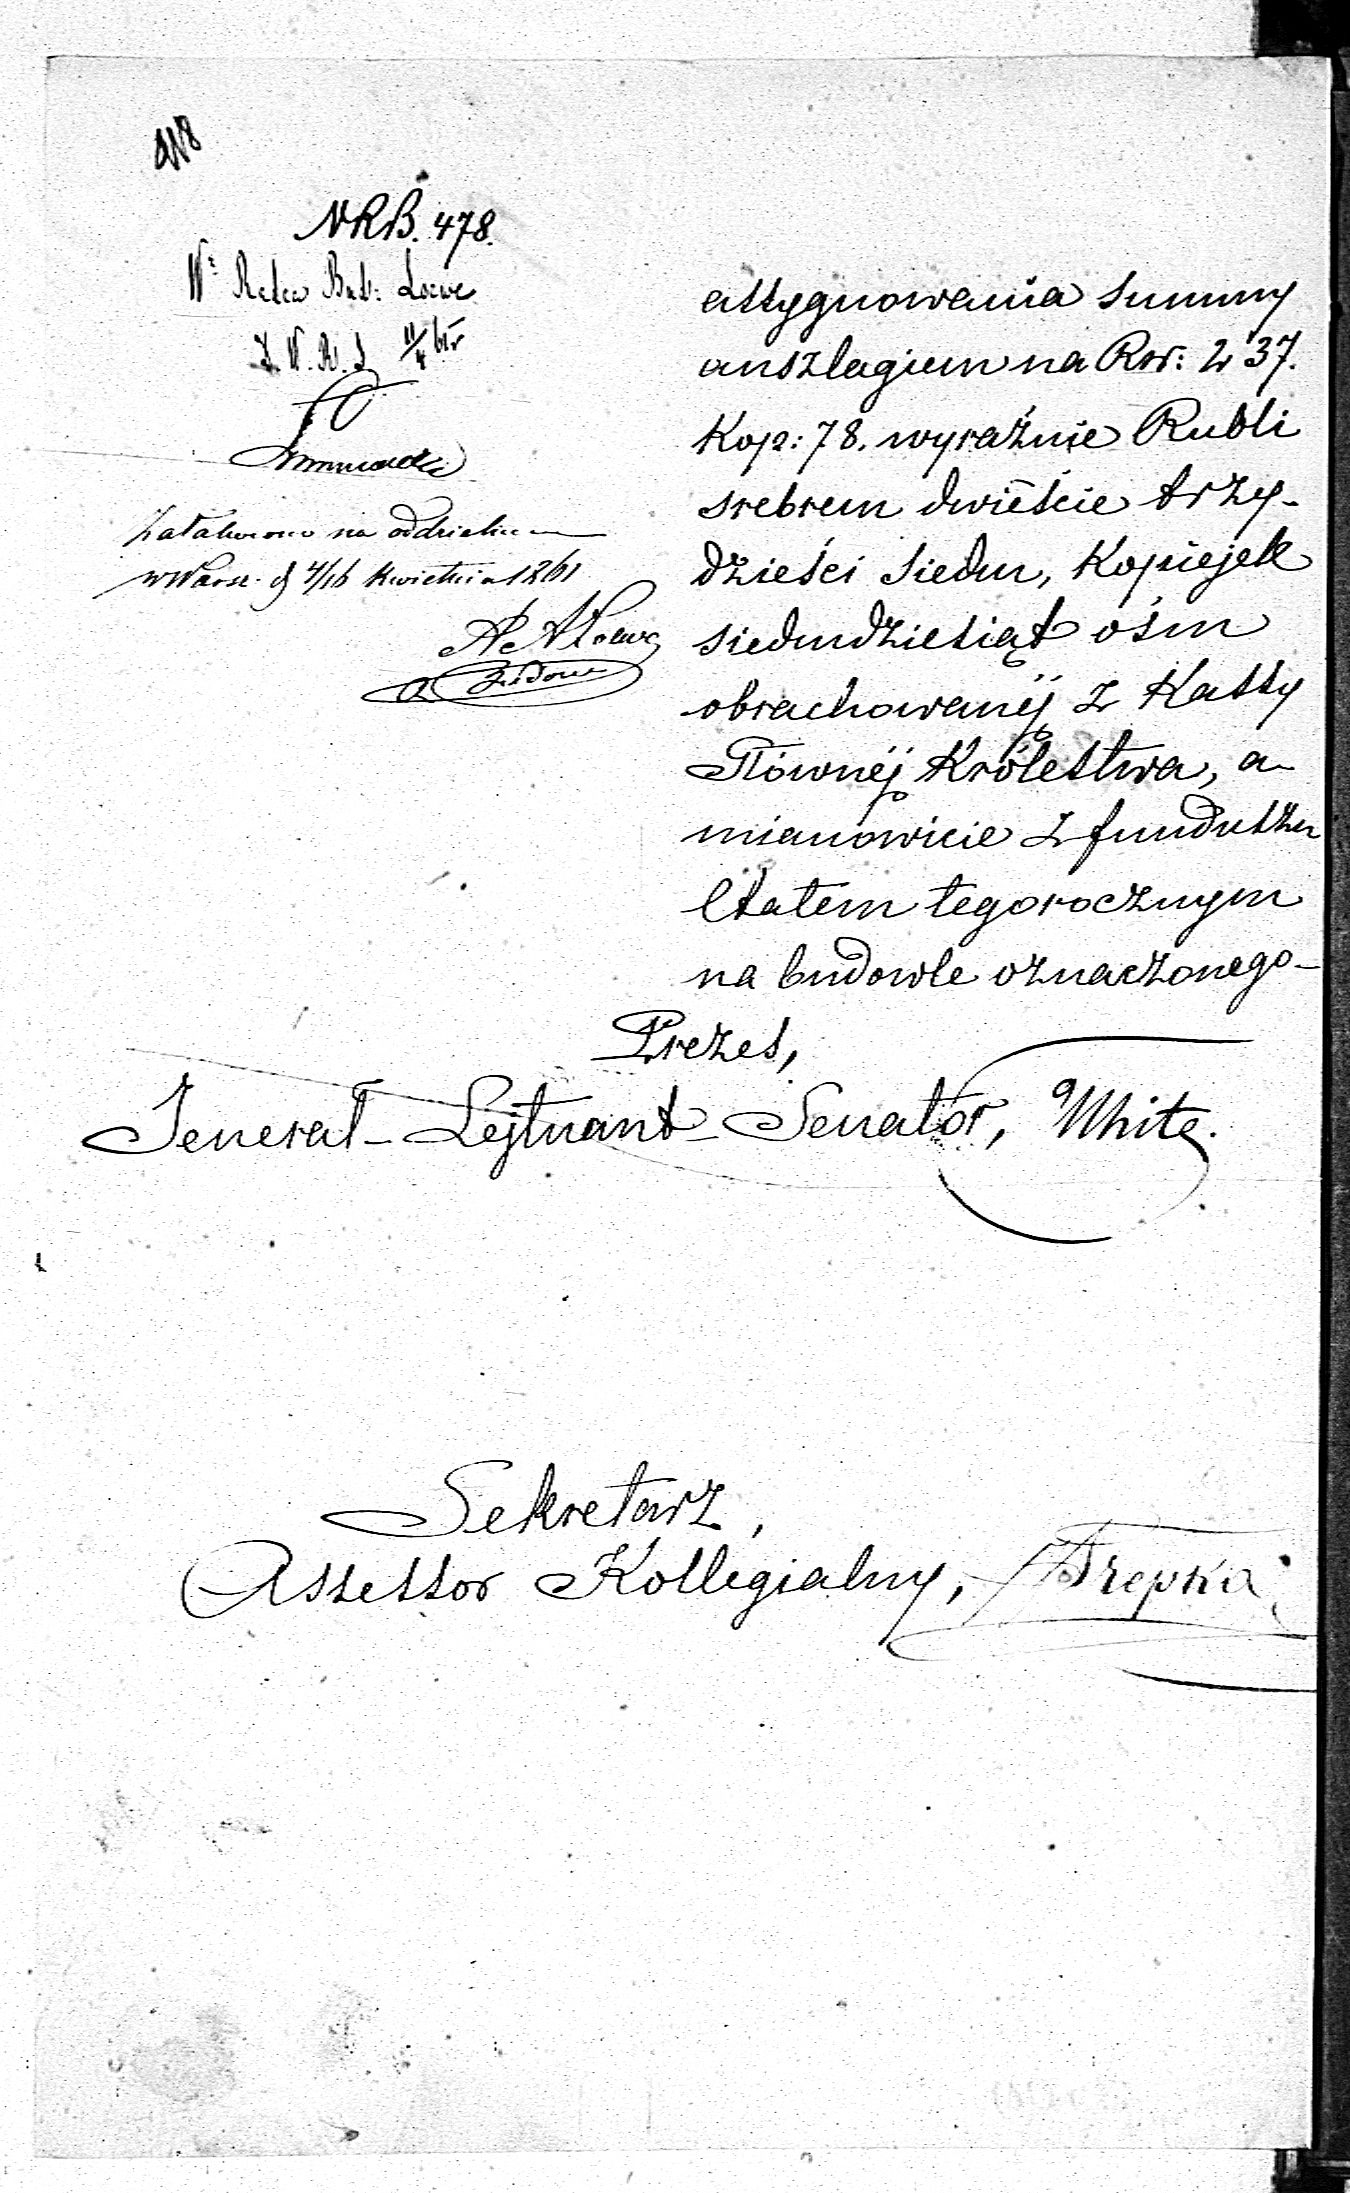 NRB. 478.
Wº Radca Bud: Loewe
Załatwiono na oddzielnem
w Warsz. d 4/16 Kwietnia 1861
Loewe
assygnowania summy
anszlagiem na Rsr: 237.
Kop: 78. wyraźnie Rubli
srebrem dwieście trzy-
dzieści siedm, Kopiejek
siedmdziesiąt ośm
obrachowanéj z Kassy
Głównéj Królestwa, a
mianowicie z funduszu
Etatem tegorocznym
na budowle oznaczonego
Prezes,
Jenerał-Lejtnant-Senator, White.
Sekretarz,
Assessor Kollegialny, Trepka